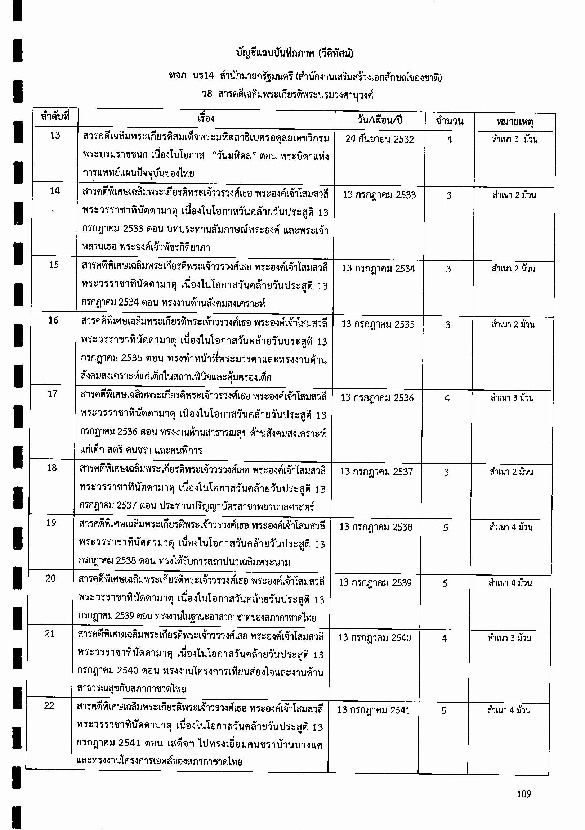 บัญชีแถบบันทึกภาพ (วีดิทัศน์)
หจภ นร14 สำนักนายกรัฐมนตรี (สำนักงานเสริมสร้างเอกลักษณ์ของชาติ)
ว8 สารคดีเฉลิมพระเกียรติพระบรมวงศานุวงศ์
ลำดับที่ เรื่อง วัน/เดือน/ปี จำนวน หมายเหตุ
13 สารคดีเฉลิมพระเกียรติสมเด็จพระมหิตลาธิเบศรอดุลยเดชวิกรม 24 กันยายน 2532 4 สำเนา 3 ม้วน
พระบรมราชชนก เนื่องในโอกาส "วันมหิดล" ตอน พระบิดาแห่ง
การแพทย์แผนปัจจุบันของไทย
14 สารคดีพิเศษเฉลิมพระเกียรติพระเจ้าวรวงศ์เธอ พระองค์เจ้าโสมสวลี 13 กรกฎาคม 2533 3 สำเนา 2 ม้วน
พระวรราชาทินัดดามาตุ เนื่องในโอกาสวันคล้ายวันประสูติ 13
กรกฎาคม 2533 ตอน บทประทานสัมภาษณ์พระองค์ และพระเจ้า
หลานเธอ พระองค์เจ้าพัชรกิติยาภา
15 สารคดีพิเศษเฉลิมพระเกียรติพระเจ้าวรวงศ์เธอ พระองค์เจ้าโสมสวลี 13 กรกฎาคม 2534 3 สำเนา 2 ม้วน
พระวรราชาทินัดดามาตุ เนื่องในโอกาสวันคล้ายวันประสูติ 13
กรกฎาคม 2534 ตอน ทรงงานด้านสังคมสงเคราะห์
16 สารคดีพิเศษเฉลิมพระเกียรติพระเจ้าวรวงศ์เธอ พระองค์เจ้าโสมสวลี 13 กรกฎาคม 2535 3 สำเนา 2 ม้วน
พระวรราชาทินัดดามาตุ เนื่องในโอกาสวันคล้ายวันประสูติ 13
กรกฎาคม 2535 ตอน ทรงทำหน้าที่พระมารดาและทรงงานด้าน
สังคมสงเคราะห์แก่เด็กในสถานพินิจและคุ้มครองเด็ก
17 สารคดีพิเศษเฉลิมพระเกียรติพระเจ้าวรวงศ์เธอ พระองค์เจ้าโสมสวลี 13 กรกฎาคม 2536 4 สำเนา 3 ม้วน
พระวรราชาทินัดดามาตุ เนื่องในโอกาสวันคล้ายวันประสูติ 13
กรกฎาคม 2536 ตอน ทรงงานด้านสาธารณสุข ด้านสังคมสงเคราะห์
แก่เด็ก สตรี คนชรา และคนพิการ
18 สารคดีพิเศษเฉลิมพระเกียรติพระเจ้าวรวงศ์เธอ พระองค์เจ้าโสมสวลี 13 กรกฎาคม 2537 3 สำเนา 2 ม้วน
พระวรราชาทินัดดามาตุ เนื่องในโอกาสวันคล้ายวันประสูติ 13
กรกฎาคม 2537 ตอน ประทานปริญญาบัตรสาขาพยาบาลศาสตร์
19 สารคดีพิเศษเฉลิมพระเกียรติพระเจ้าวรวงศ์เธอ พระองค์เจ้าโสมสวลี 13 กรกฎาคม 2538 5 สำเนา 4 ม้วน
พระวรราชาทินัดดามาตุ เนื่องในโอกาสวันคล้ายวันประสูติ 13
กรกฎาคม 2538 ตอน ทรงได้รับการสถาปนาเฉลิมพระนาม
20 สารคดีพิเศษเฉลิมพระเกียรติพระเจ้าวรวงศ์เธอ พระองค์เจ้าโสมสวลี 13 กรกฎาคม 2539 5 สำเนา 4 ม้วน
พระวรราชาทินัดดามาตุ เนื่องในโอกาสวันคล้ายวันประสูติ 13
กรกฎาคม 2539 ตอน ทรงงานในฐานะอาสากาชาดของสภากาชาดไทย
21 สารคดีพิเศษเฉลิมพระเกียรติพระเจ้าวรวงศ์เธอ พระองค์เจ้าโสมสวลี 13 กรกฎาคม 2540 4 สำเนา 3 ม้วน
พระวรราชาทินัดดามาตุ เนื่องในโอกาสวันคล้ายวันประสูติ 13
กรกฎาคม 2540 ตอน ทรงงานโครงการเทียนส่องใจและงานด้าน
สาธารณสุขกับสภากาชาดไทย
22 สารคดีพิเศษเฉลิมพระเกียรติพระเจ้าวรวงศ์เธอ พระองค์เจ้าโสมสวลี 13 กรกฎาคม 2541 5 สำเนา 4 ม้วน
พระวรราชาทินัดดามาตุ เนื่องในโอกาสวันคล้ายวันประสูติ 13
กรกฎาคม 2541 ตอน เสด็จฯ ไปทรงเยี่ยมคนชราบ้านบางแค
และทรงงานโครงการเอดส์ของสภากาชาดไทย
109